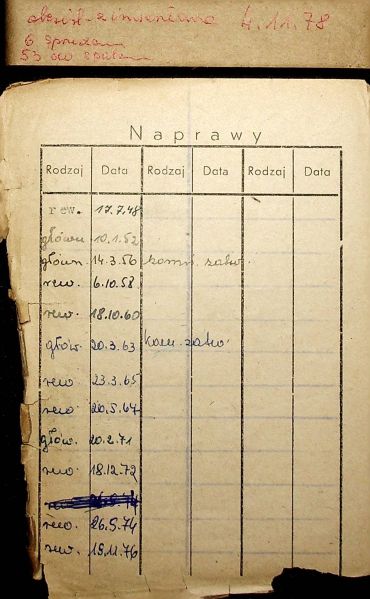 z inwentarza 4.11.78
6 sprzedam
53 do spalen
Naprawy
Rodzaj Data Rodzaj Data Rodzaj Data
rew. 17.7.48
główn 10.1.52
główn. 14.3.56 kom. zatw.
rew. 6.10.58
rew. 18.10.60
główn. 20.3.63 kom. zatw.
rew 23.3.65
rew. 20.5.67
głów. 20.2.71
rew. 18.12.72
rew. 26.5.74
rew. 19.11.76